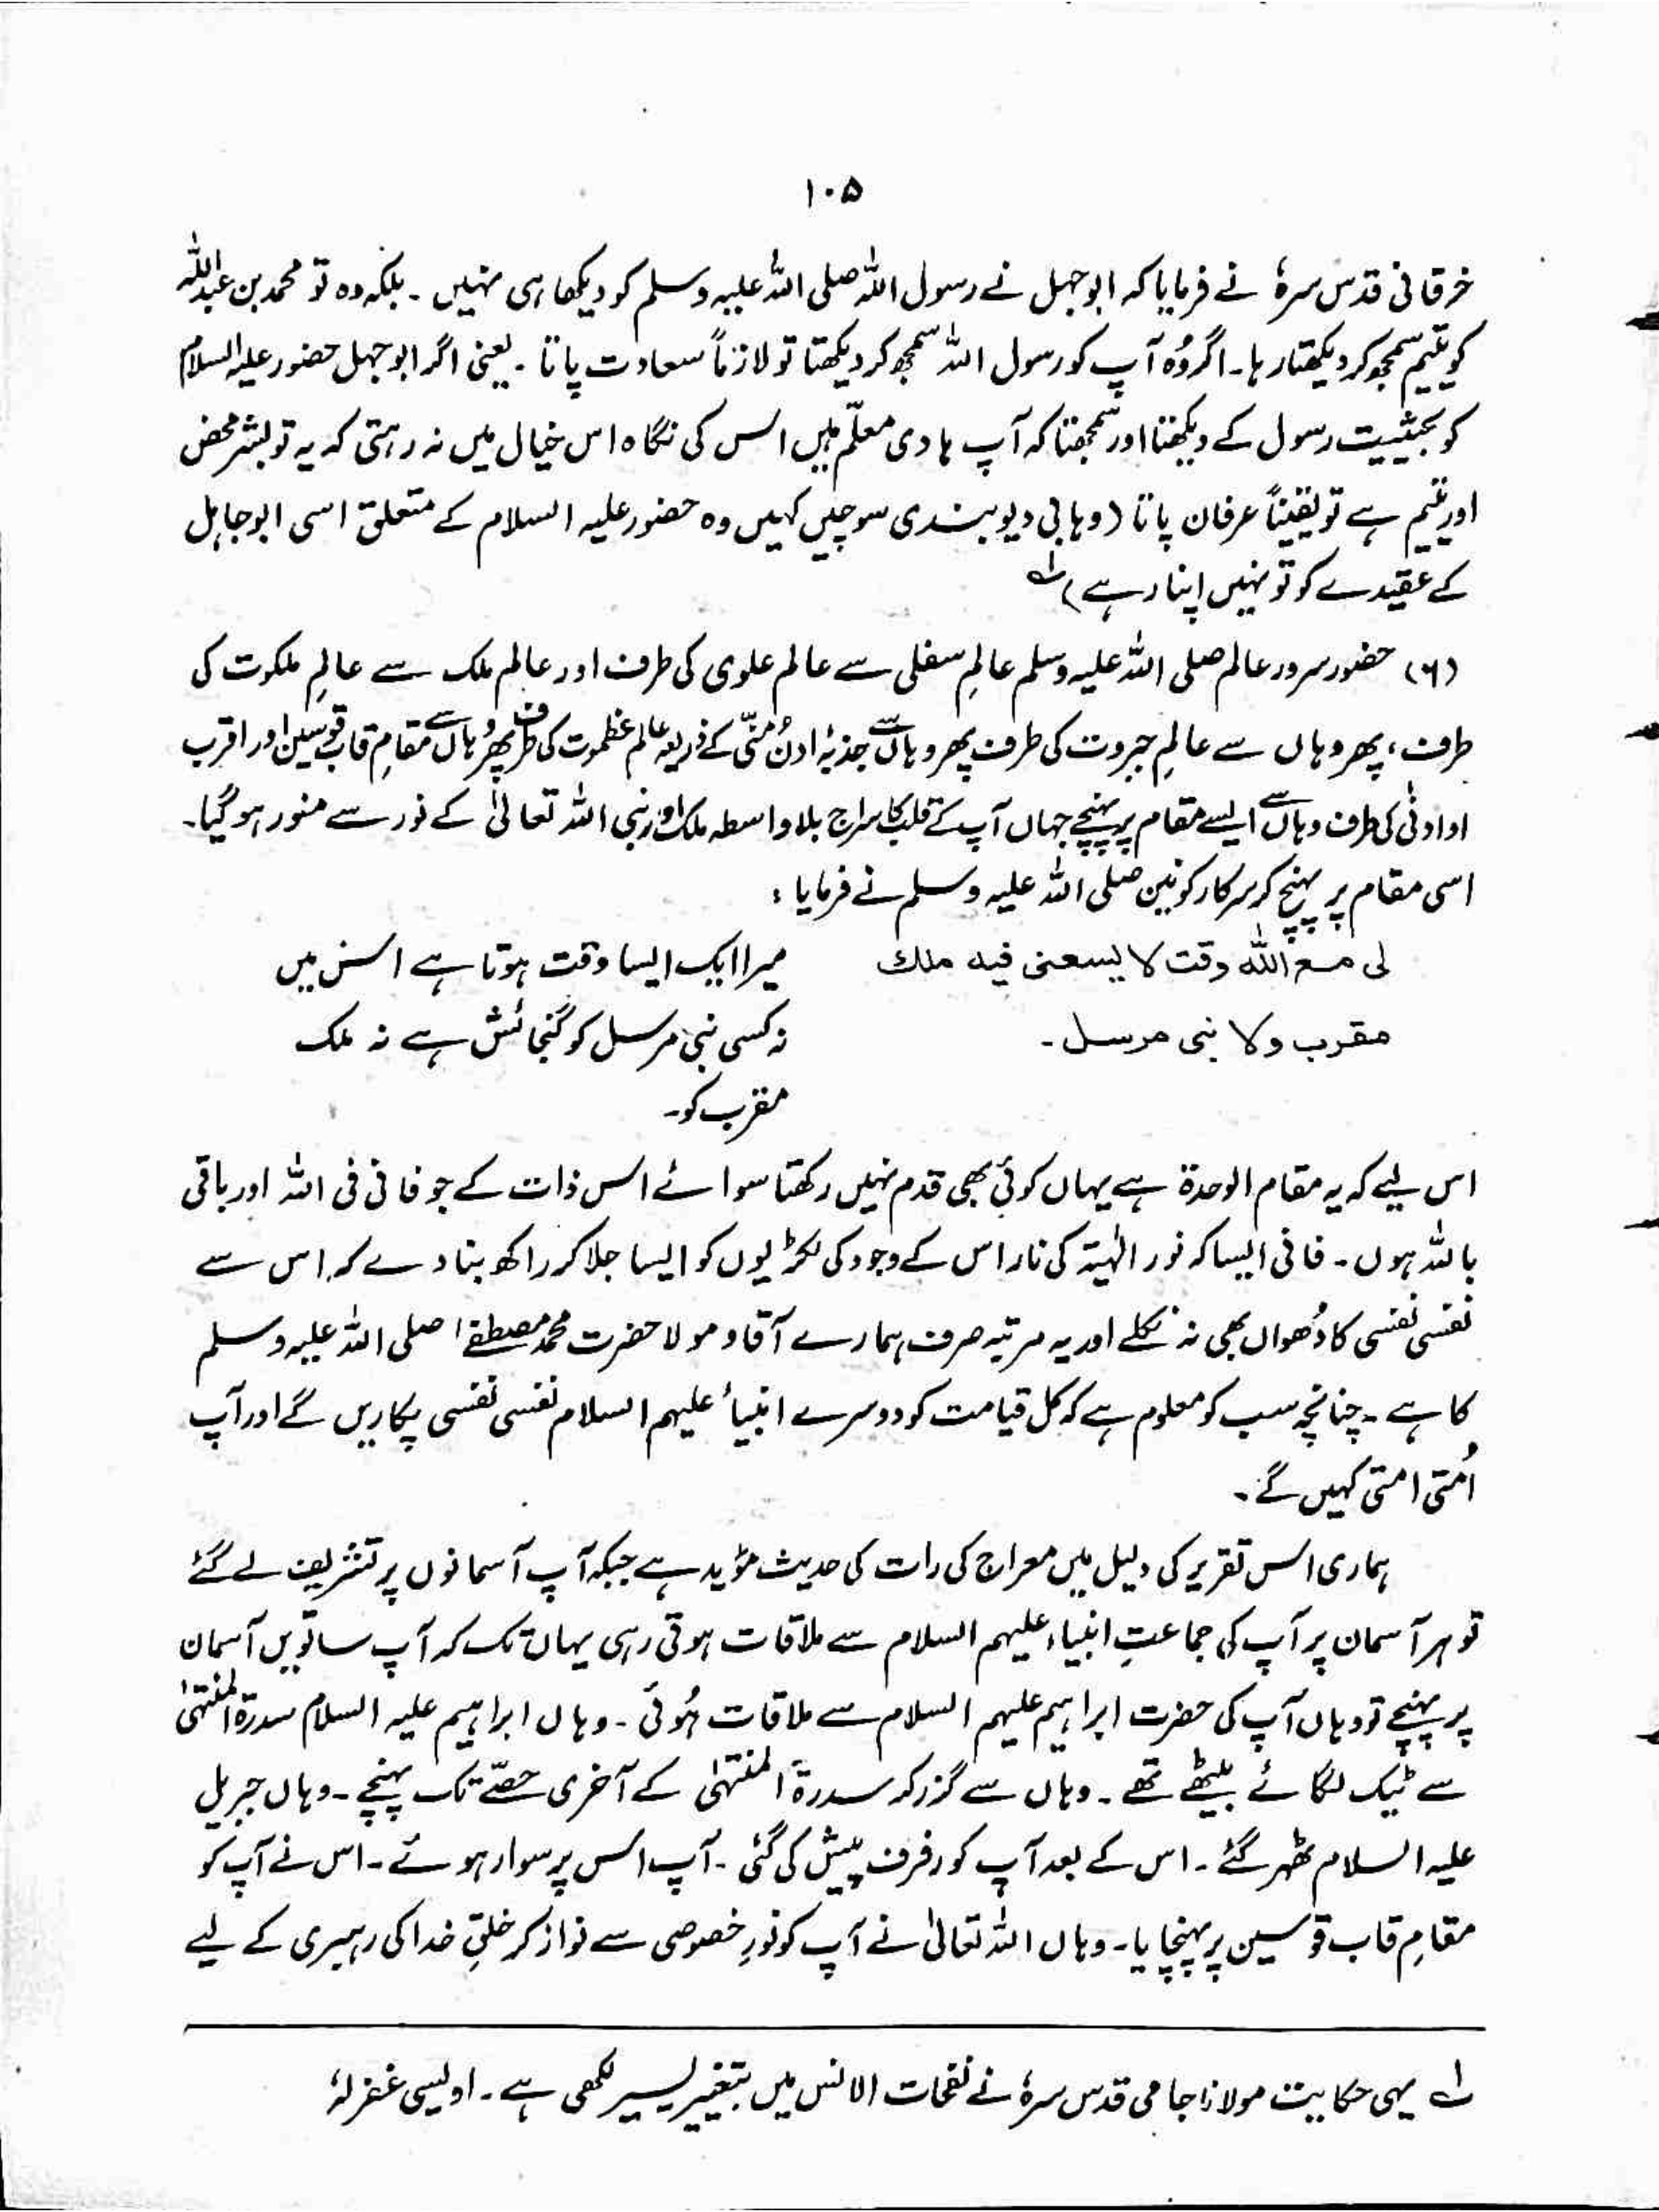 ۱۰۵
خرقانی قدس سرہٗ نے فرمایا کہ ابوجہل نے رسول اللہ صلی اللہ علیہ وسلم کو دیکھا ہی نہیں ۔ بلکہ وہ تو محمد بن عبداللہ
کو یتیم سمجھ کر دیکھتا رہا۔ اگر وُہ آپ کو رسول اللہ سمجھ کر دیکھتا تو لازماً سعادت پاتا ۔ یعنی اگر ابوجہل حضور علیہ السلام
کو بحیثیت رسول کے دیکھتا اور سمجھتا کہ آپ ہادی معلّم ہیں اس کی نگاہ اس خیال میں نہ رہتی کہ یہ تو بشر محض
اور یتیم ہے تو یقیناً عرفان پاتا (وہابی دیوبندی سوچیں کہیں وہ حضور علیہ السلام کے متعلق اسی ابوجاہل
کے عقیدے کو تو نہیں اپنا رہے) لہ
(۶) حضور سرور عالم صلی اللہ علیہ وسلم عالمِ سفلی سے عالم علوی کی طرف اور عالم ملک سے عالمِ ملکوت کی
طرف، پھر وہاں سے عالمِ جبروت کی طرف پھر وہاں سے جذبۂ ادنُ منّی کے ذریعہ عالم عظموت کی طرف پھر وہاں سے مقامِ قاب قوسین اور اقرب
او ادنٰی کی طرف وہاں سے ایسے مقام پر پہنچے جہاں آپ کے قلب کا سراج بلا واسطہ ملک اور نبی اللہ تعالیٰ کے نور سے منور ہو گیا۔
اسی مقام پر پہنچ کر سرکار کونین صلی اللہ علیہ وسلم نے فرمایا :
لی مع اللہ وقت لا یسعنی فیہ ملک
مقرب ولا نبی مرسل ۔
میرا ایک ایسا وقت ہوتا ہے اس میں
نہ کسی نبی مرسل کو گنجائش ہے نہ ملک
مقرب کو۔
اس لیے کہ یہ مقام الوحدۃ ہے یہاں کوئی بھی قدم نہیں رکھتا سوائے اس ذات کے جو فانی فی اللہ اور باقی
باللہ ہوں ۔ فانی ایسا کہ نور الٰہیۃ کی نار اس کے وجود کی لکڑیوں کو ایسا جلا کر راکھ بنا دے کہ اس سے
نفسی نفسی کا دُھواں بھی نہ نکلے اور یہ مرتبہ صرف ہمارے آقا و مولا حضرت محمد مصطفےٰ صلی اللہ علیہ وسلم
کا ہے ۔ چنانچہ سب کو معلوم ہے کہ کل قیامت کو دوسرے انبیأ علیہم السلام نفسی نفسی پکاریں گے اور آپ
اُمتی امتی کہیں گے ۔
ہماری اس تقریر کی دلیل میں معراج کی رات کی حدیث مؤید ہے جبکہ آپ آسمانوں پر تشریف لے گئے
تو ہر آسمان پر آپ کی جماعتِ انبیاء علیہم السلام سے ملاقات ہوتی رہی یہاں تک کہ آپ ساتویں آسمان
پر پہنچے تو وہاں آپ کی حضرت ابراہیم علیہم السلام سے ملاقات ہُوئی ۔ وہاں ابراہیم علیہ السلام سدرۃ المنتہیٰ
سے ٹیک لگائے بیٹھے تھے ۔ وہاں سے گزر کر سدرۃ المنتہیٰ کے آخری حصّے تک پہنچے ۔ وہاں جبریل
علیہ السلام ٹھہر گئے ۔ اس کے بعد آپ کو رفرف پیش کی گئی ۔ آپ اس پر سوار ہوئے ۔ اس نے آپ کو
مقامِ قاب قوسین پر پہنچایا۔ وہاں اللہ تعالیٰ نے آپ کو نورِ خصوصی سے نواز کر خلقِ خدا کی رہبری کے لیے
لہ یہی حکایت مولانا جامی قدس سرہٗ نے نفحات الانس میں بتغیر یسیر لکھی ہے ۔ اویسی غفرلہٗ